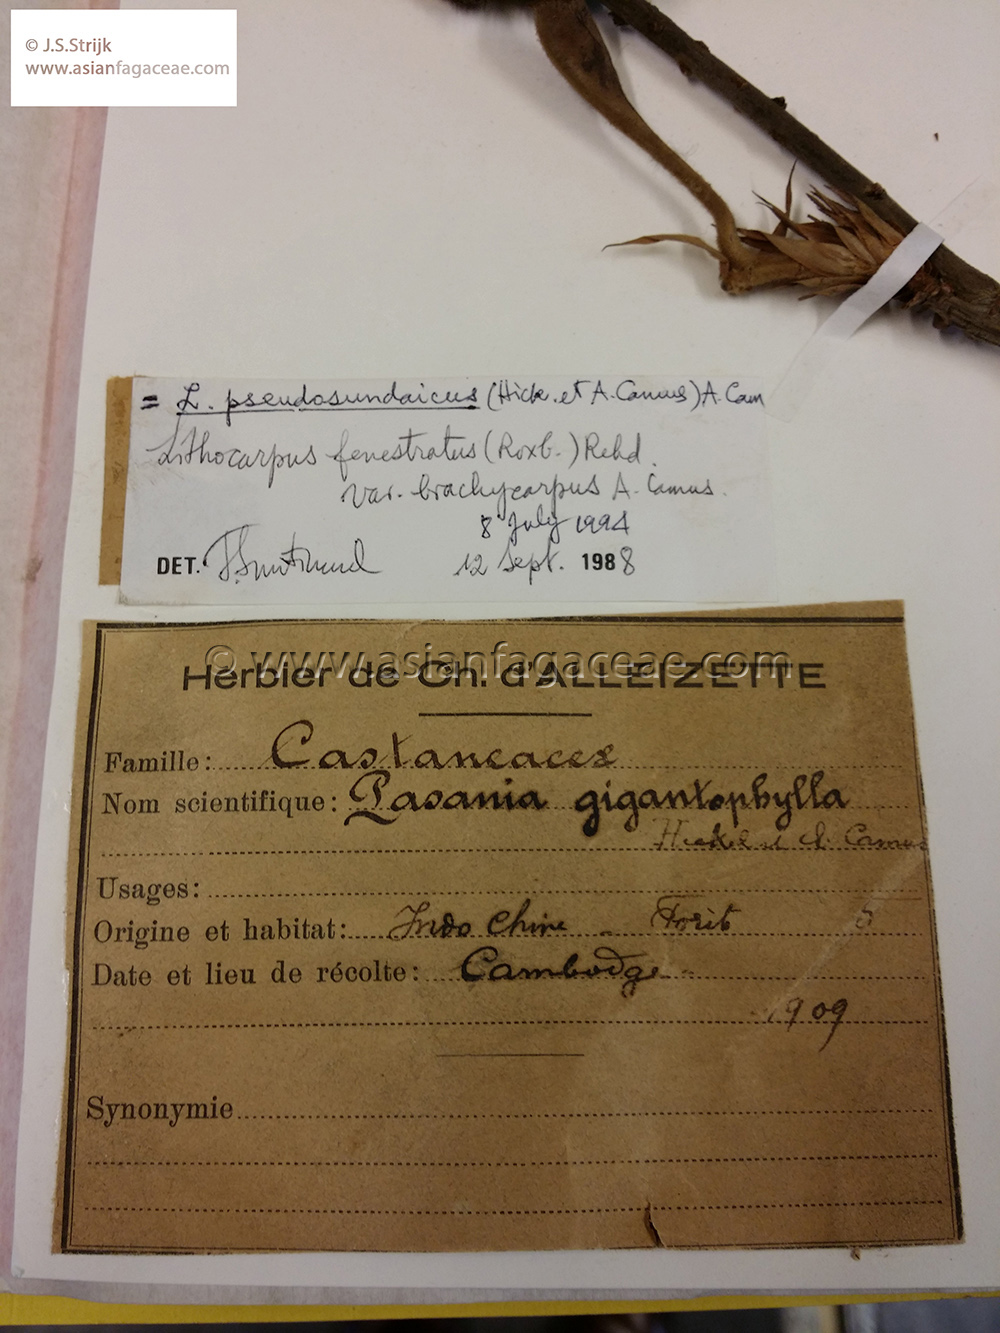 © J.S.Strijk
www.asianfagaceae.com
= L. pseudosundaicus (Hick. et A. Camus) A. Cam
Lithocarpus fenestratus (Roxb.) Rehd.
var. brachycarpus A. Camus.
8 July 1994
DET. 12 Sept. 1988
© www.asianfagaceae.com
Herbier de Ch. d'ALLEIZETTE
Famille: Castaneaceæ
Nom scientifique: Pasania gigantophylla
Hickel et A. Camus
Usages:
Origine et habitat: Indo Chine - Forêt
Date et lieu de récolte: Cambodge -
1909
Synonymie